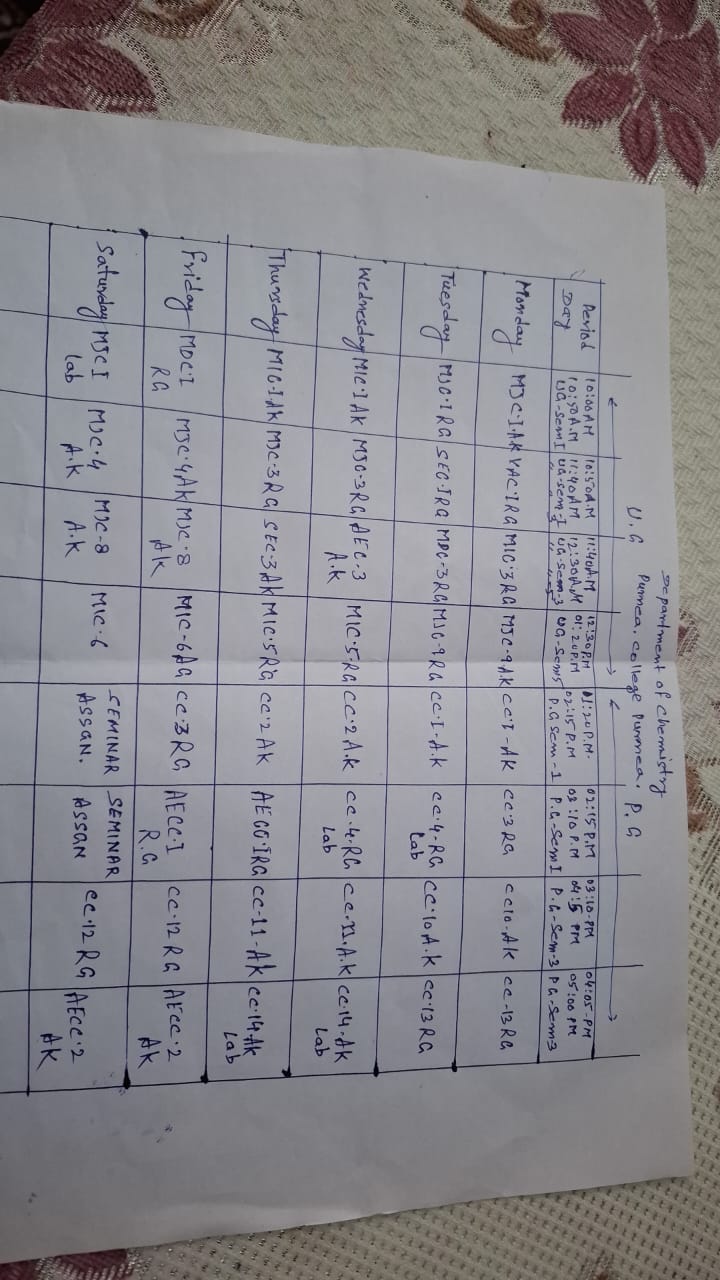 Department of chemistry
Purnea. college Purnea.
U.G P.G
Period 10:00AM 10:50A.M 11:40A.M 12:30P.M 01:20P.M. 02:15P.M 03:10-PM 04:05-PM
Day 10:50A.M 11:40AM 12:30A.M 01:20P.M 02:15 P.M 03:10 P.M PM 05:00 PM
UG-Sem I UG-Sem-I UG-Sem-3 UG-Sem5 P.G Sem-1 P.G-Sem I P.G-Sem-3 P.G-Sem3
Monday MJC-I AK VAC-I RG MIC-3 RG MJC-9 AK CC-I-AK CC-3 RG CC10-AK CC-13 RG
Tuesday MJC-I RG SEC-I RG MDC-3 RG MJC-9 RG CC-I-A.K CC-4-RG CC-10 A.K CC-13 RG
Lab
Wednesday MIC-I AK MJC-3 RG AEC-3 MIC-5-RG CC-2 A.K CC-4-RG CC-11.A.K CC-14.AK
A.K Lab Lab
Thursday MIC-I AK MJC-3 RG SEC-3 AK MIC-5 RG CC-2 AK AECC-I RG CC-11-AK CC-14.AK
Lab
Friday MDC-I MJC-4 AK MJC-8 MIC-6 AG CC-3 RG AECC-I CC-12 RG AECC-2
RG AK R.G AK
Saturday MJC I MJC-4 MJC-8 MIC-6 SEMINAR SEMINAR CC-12 RG AECC-2
Lab A.K A.K ASSAN. ASSAN AK